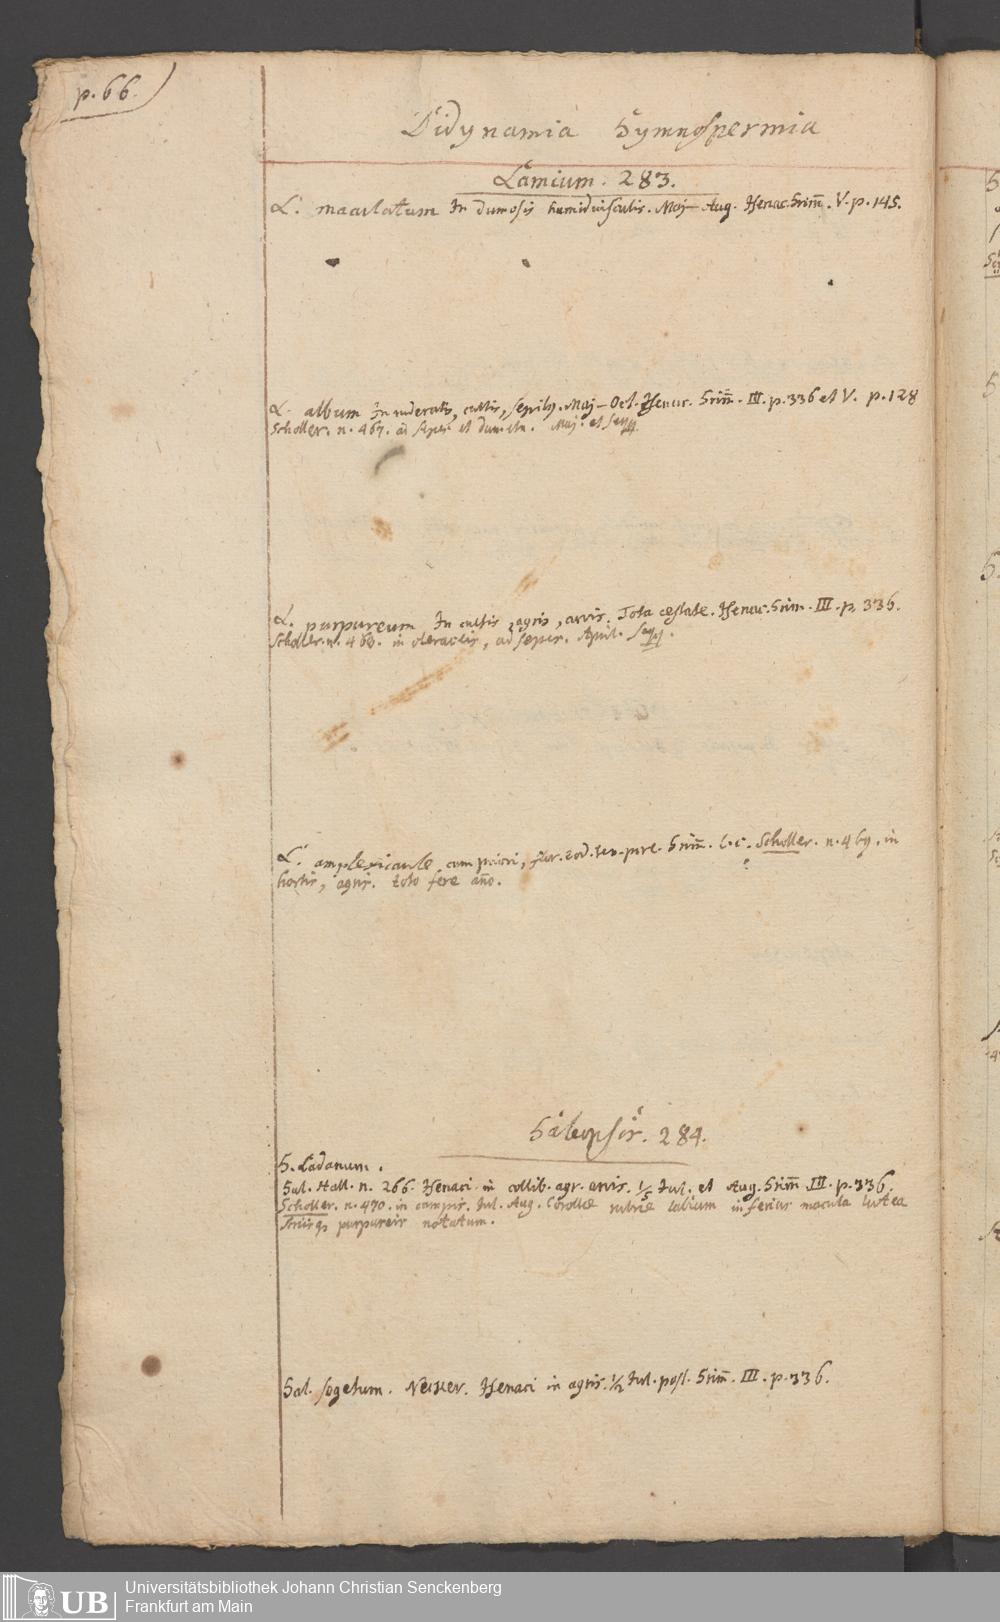 p. 66.
Didynamia Gymnospermia
Lamium. 283.
L. maculatum In dumosis humidiusculis. Maj – Aug. Isenac. Grim̄. V. p. 145.
L. album In ruderatis, cultis, sepibꝫ. Maj – Oct. Isenac. Grim̄. III. p. 336 et V. p. 128
Scholler. n. 467. ad sepes et dumeta. Maj. et
L. purpureum In cultis, agris, arvis. Tota æstate. Isenac. Grim. III. p. 336.
Scholler. n. 468. in oleraceis, ad sepes. April.
L. amplexicaule cum priori, flor. eod. temp. Grim̄. l. c. Scholler. n. 469. in
hortis, agris. toto fere año.
Galeopsis. 284.
G. Ladanum.
Gal. Hall. n. 266. Isenaci in collib. agr. arvis. 1/5 Jul. et Aug. Grim̄ III. p. 336.
Scholler. n. 470. in campis. Jul. Aug. Corollæ rubræ labium inferius macula lutea
purpureis notatum.
Gal. segetum. Necker. Isenaci in agris. 1/2 Jul. post. Grim̄. III. p. 336.
UB
Universitätsbibliothek Johann Christian Senckenberg
Frankfurt am Main